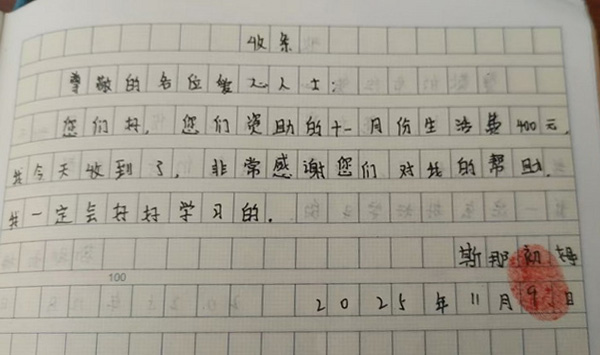 收条
尊敬的各位爱心人士:
您们好,您们资助的十一月份生活费400元,
我今天收到了,非常感谢您们对我的帮助,
我一定会好好学习的.
斯那初姆
100
2025年11月9日